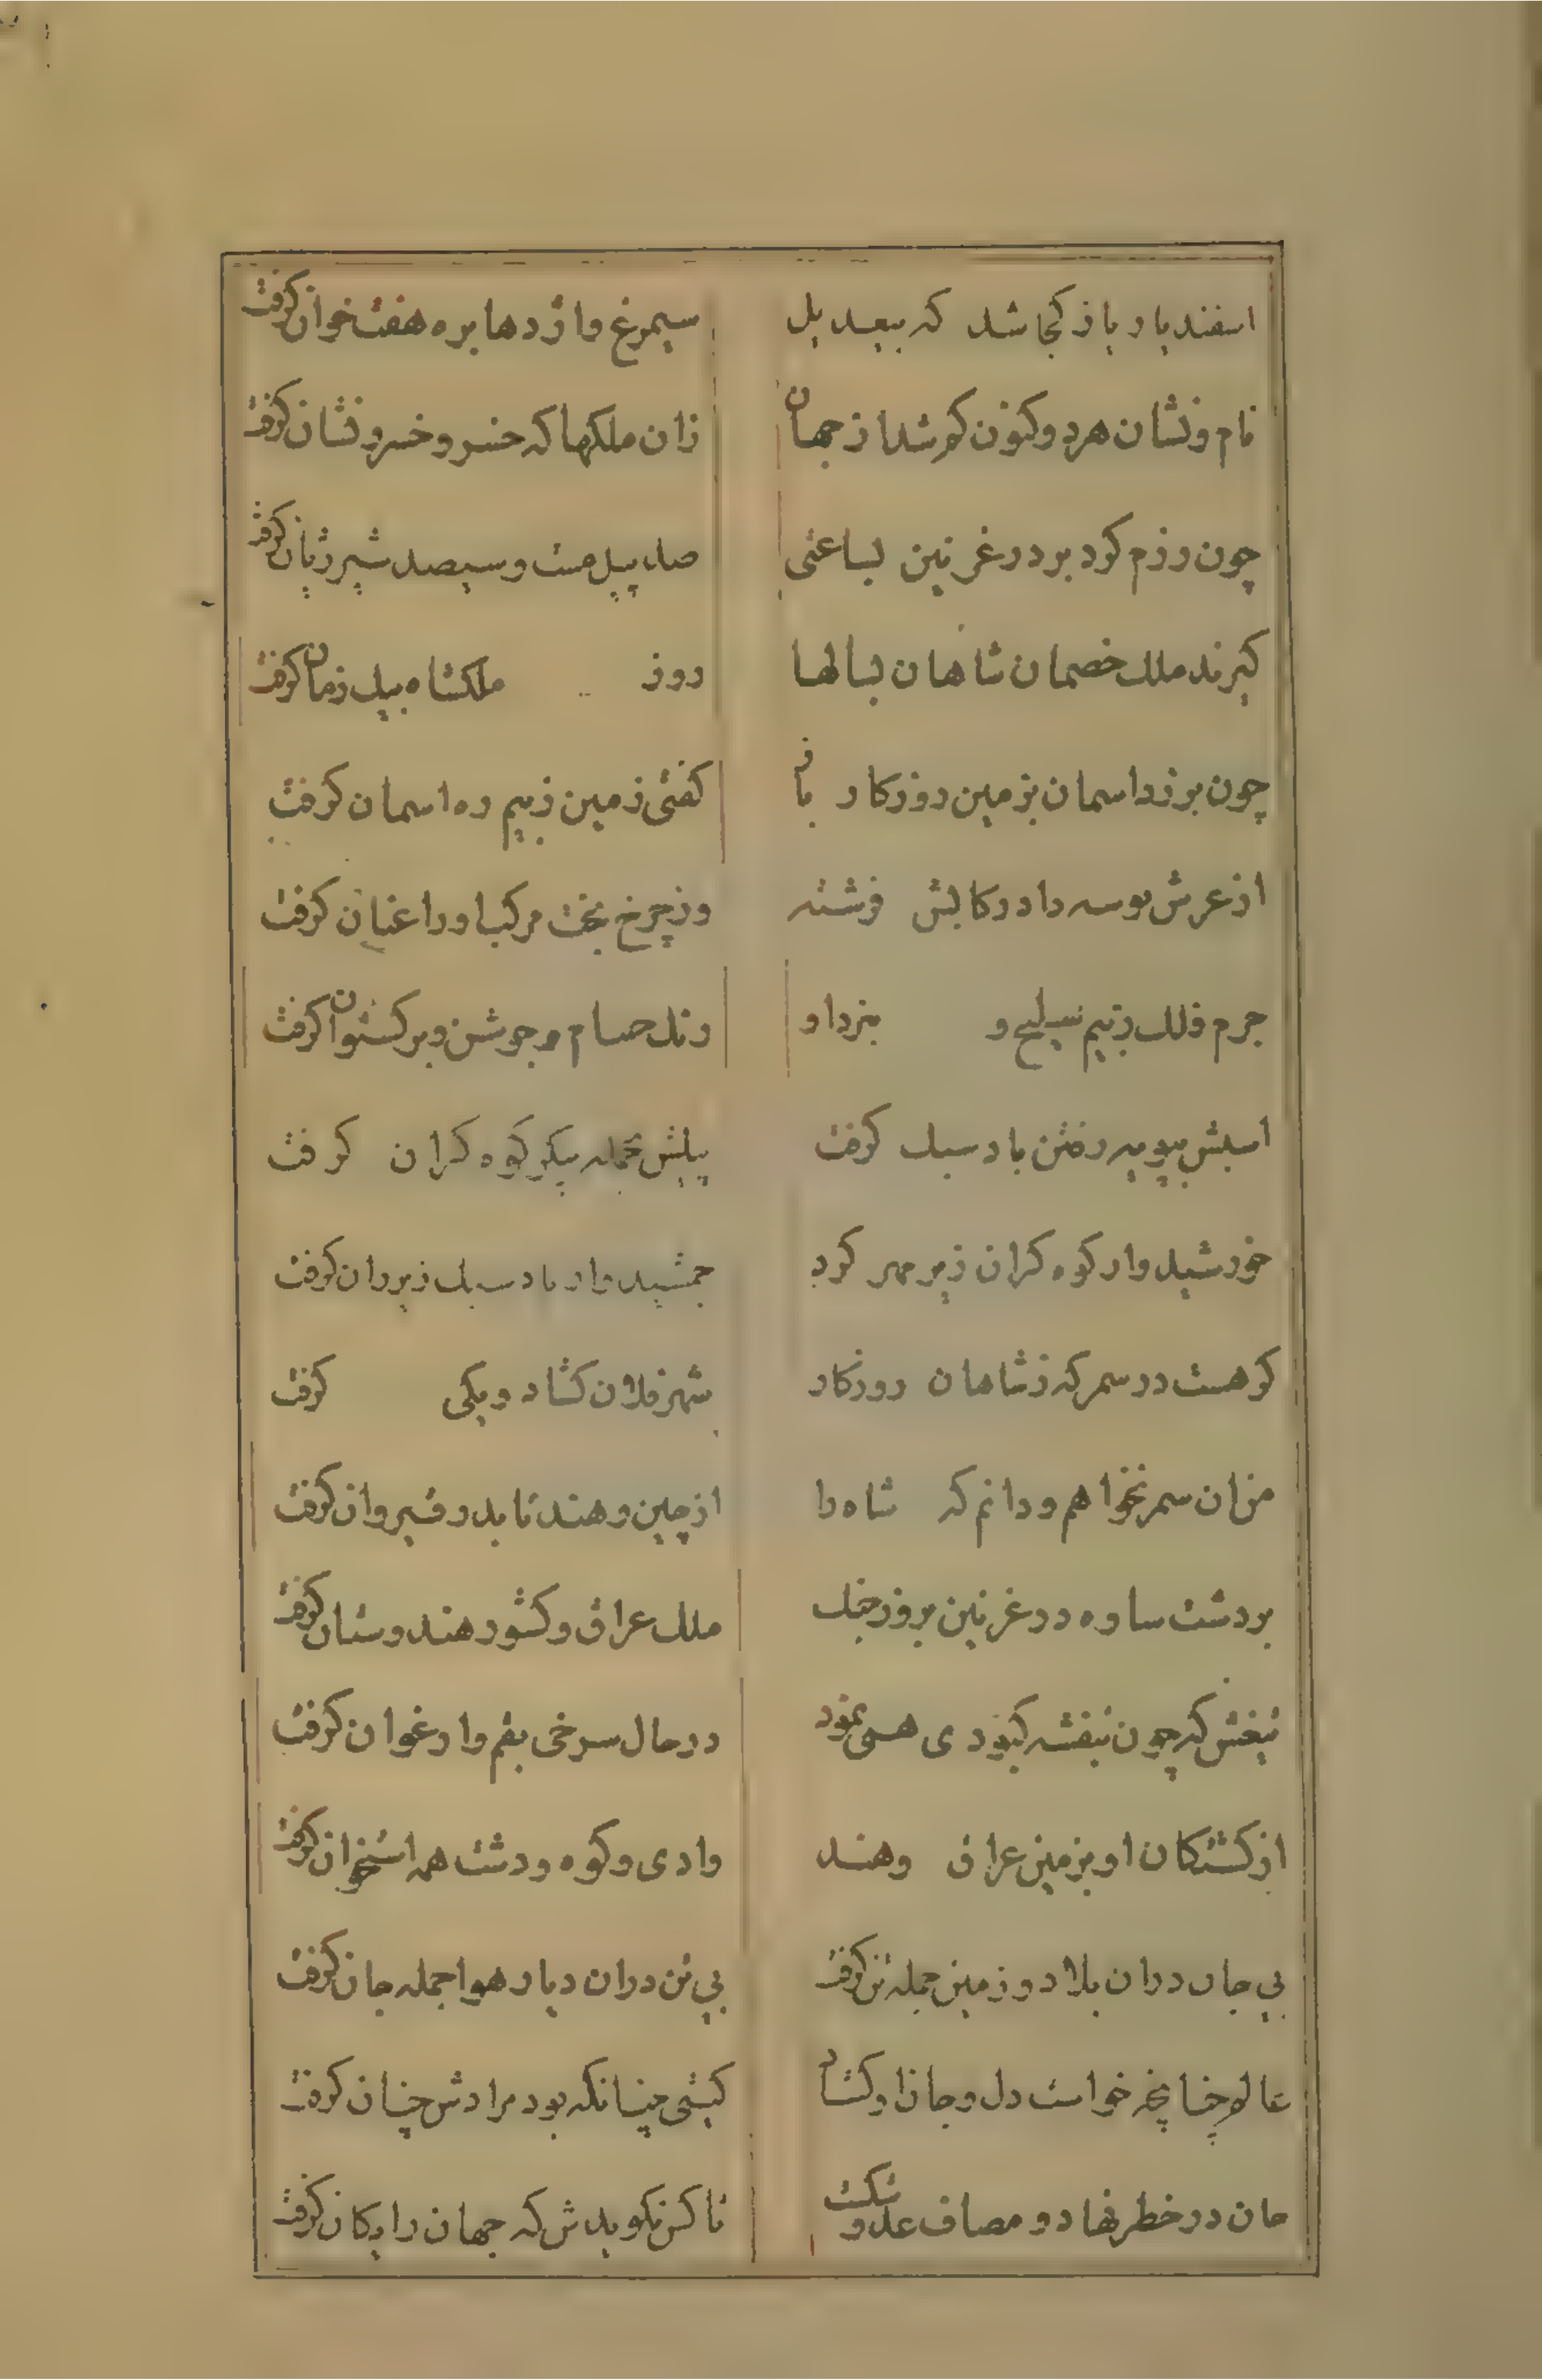 اسفندیار باز کجا شد که بیند سیمرغ و اژدها بره هفتخوان کرفت
نام و نشان هر دو کنون کو شد از جهان زان ملکها که خسرو خسرو نشان کرفت
چون رزم کرد بر در غزنین بساعتی صد پیل مست و سیصد شیر ژیان کرفت
کیرند ملک خصمان شاهان بسالها روز ملکشاه بیک زمان کرفت
چون برزد اسمان بزمین روزکار کفتی زمین زبیم ره اسمان کرفت
از عرش بوسه داد رکابش فرشته وز چرخ بخت مرکب او را عنان کرفت
جرم فلک زبیم و بنزد او رنک حسام و جوشن و برکستوان کرفت
اسبش بپویه رفتن باد سبک کرفت پیلش بحمله پیکر کوه کران کرفت
خورشید وار کوه کران زیر مهر کرد جمشید وار باد سبک زیر ران کرفت
کو هست در سمر که زشاهان روزکار شهر فلان کشاد و یکی کرفت
من ان سمر نخواهم و دانم که شاه را از چین و هند تا بدر قیروان کرفت
بر دشت ساوه در غزنین بروز جنک ملک عراق و کشور هندوستان کرفت
تیغش که چون بنفشه کبودی همی نمود در حال سرخی بقم و ارغوان کرفت
از کشتکان او بزمین عراق وهند وادی و کوه و دشت همه استخوان کرفت
بی جان دران بلاد و زمین جمله تن کرفت بی تن دران دیار هوا جمله جان کرفت
عالم چنانچه خواست دل و جان او کشاد کیتی چنانکه بود مرادش چنان کرفت
جان در خطر نهاد و مصاف عدو شکست تا کس نکویدش که جهان رایکان کرفت